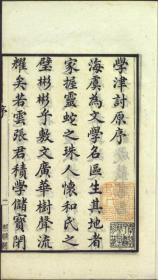 學津討原序
海虞為文學名區生其地者
家握靈蛇之珠人懷和氏之
璧彬彬乎敷文廣華樹聲流
耀矣若雲張君積學儲寶閉
序